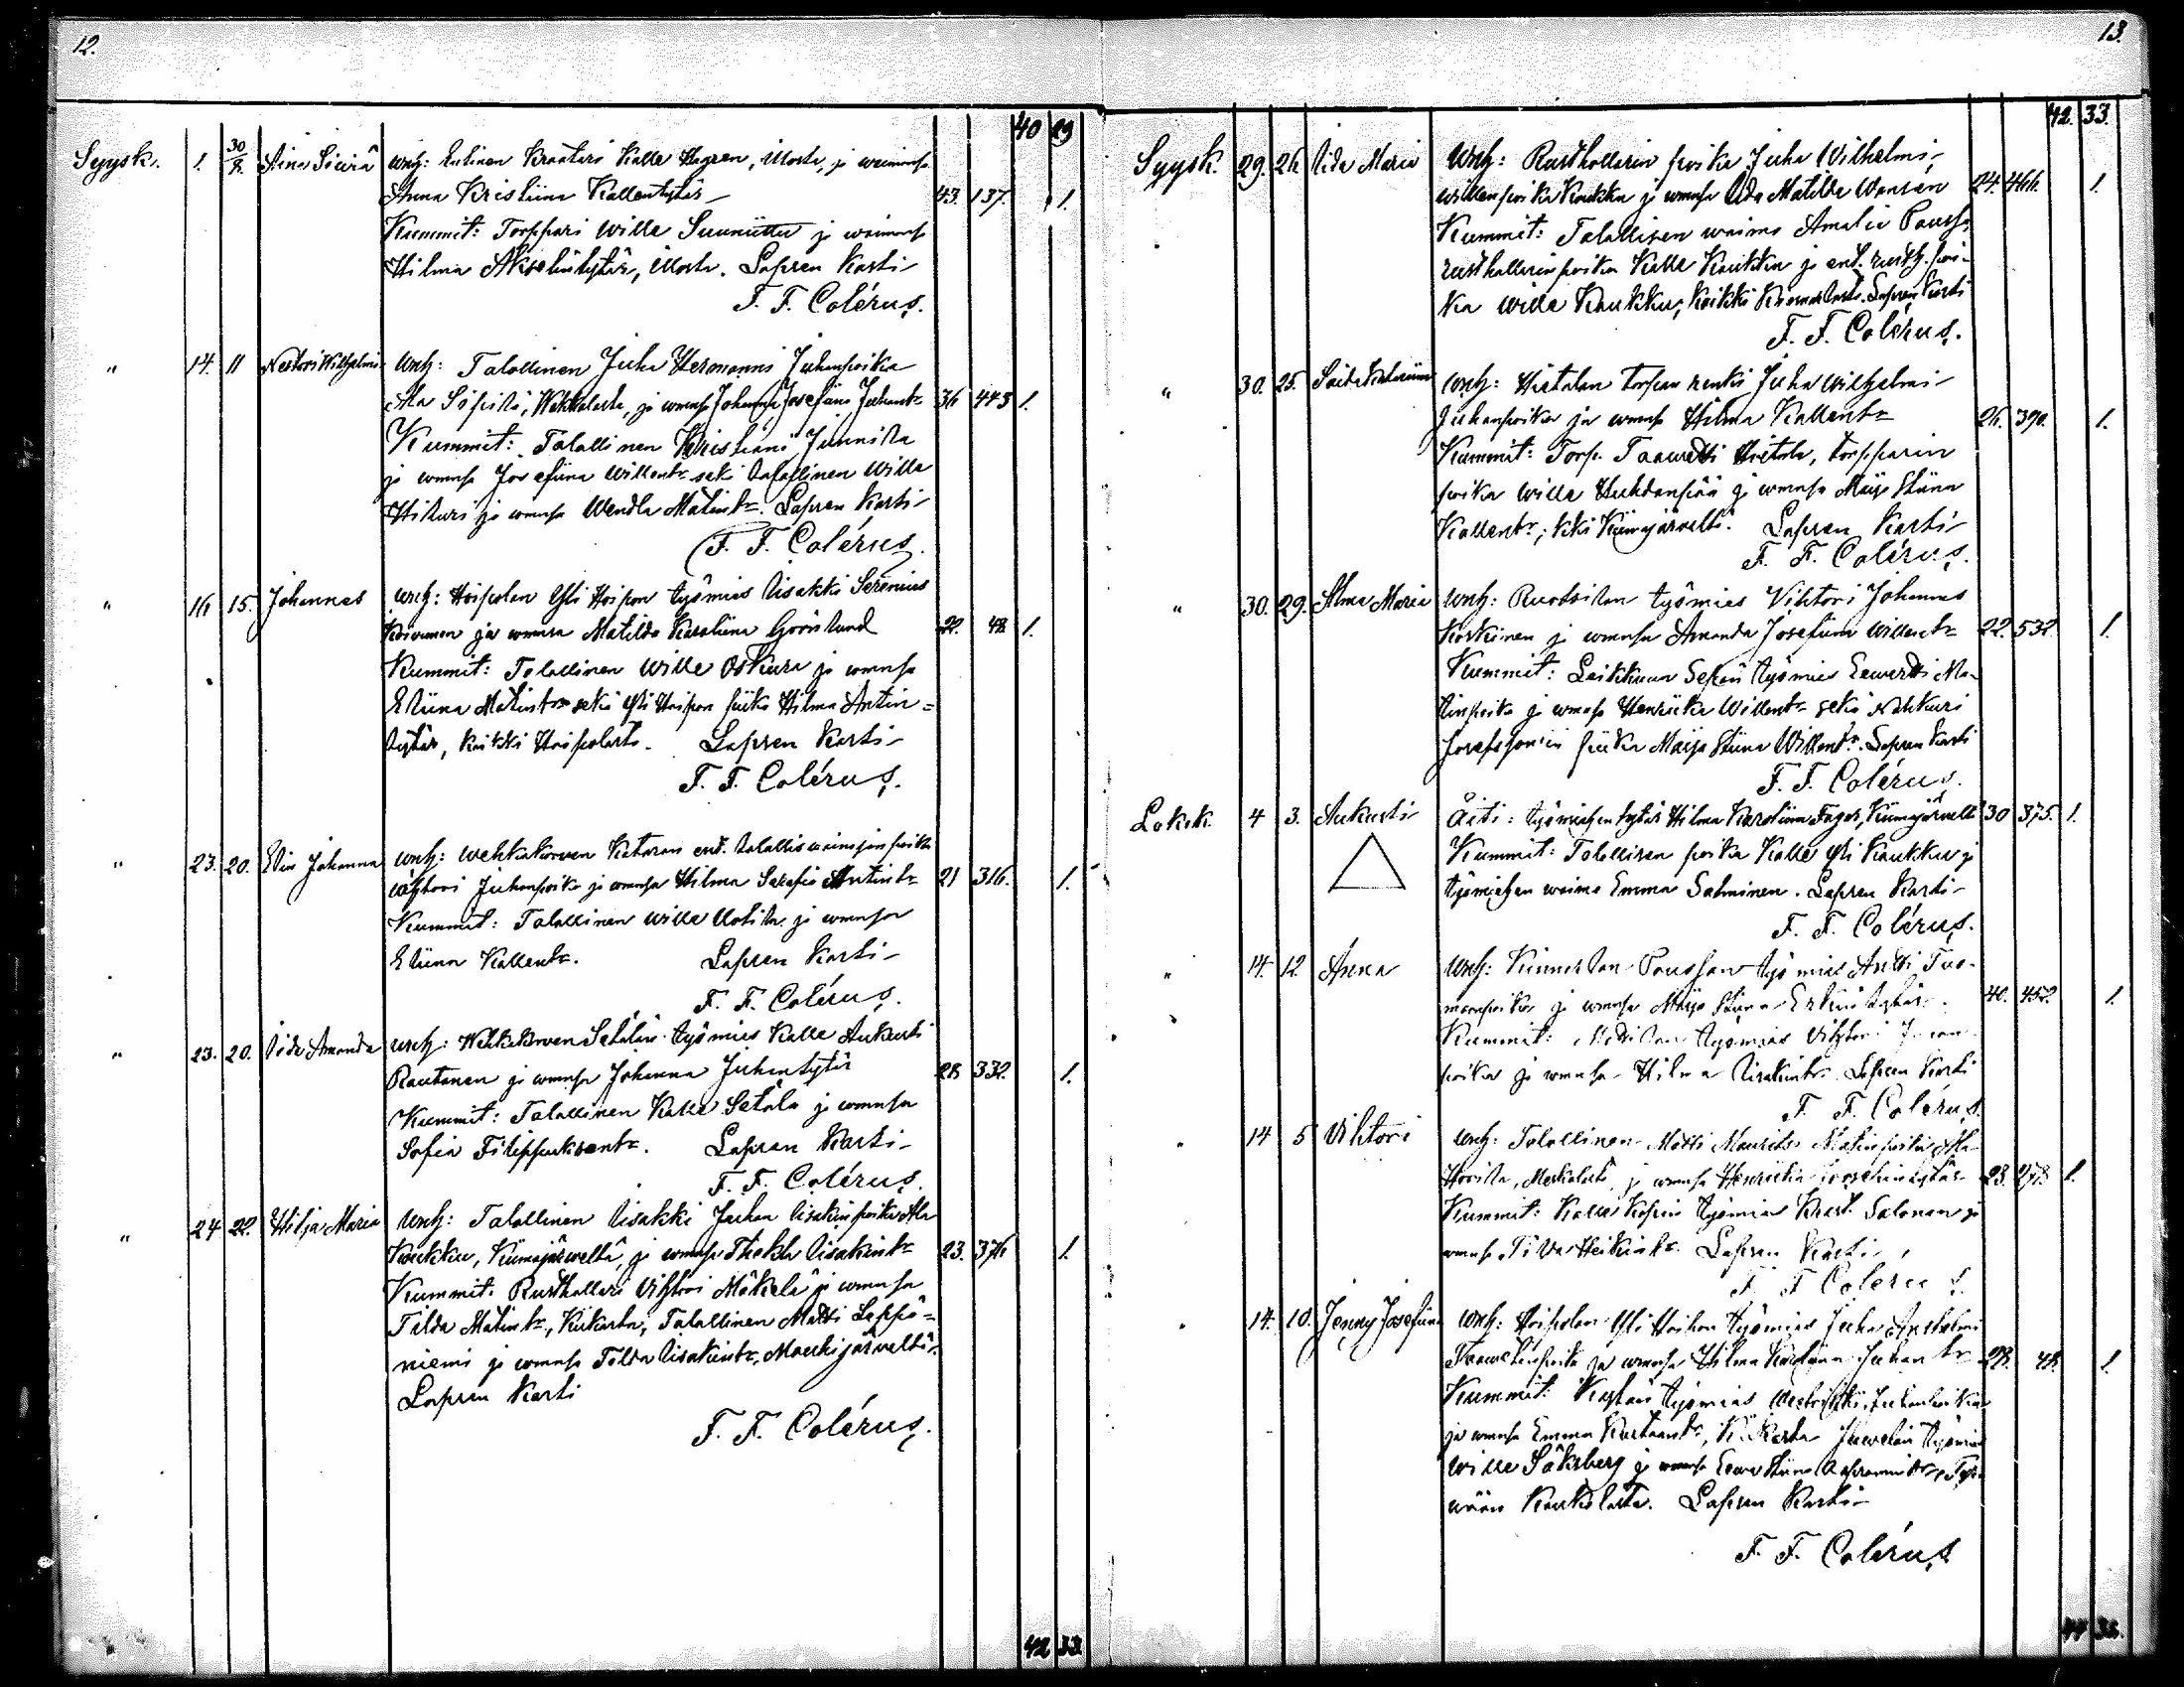 12.
40 29
Syysk. 1. 30/8. Aina Siviä Wnh: Entinen Kraatari Kalle Hagren, Illosta, ja waimonsa
Anna Kristiina Kallentytär 43. 137. 1.
Kummit: Torppari Wille Suuniittu ja waimonsa
Hilma Akselintytär, Illosta. Lapsen Kasti
F. F. Colérus.
" 14. 11 Nestori Wilhelmi Wnh: Talollinen Juha Hermanni Juhanpoika
Ala Sipilä, Wehkalasta, ja wmnsa Johanna Josefiina Juhantr 36 443 1.
Kummit: Talollinen Kristiani Junnila
ja wmnsa Josefiina Willentr sekä talollinen Wille
Hituri ja wmnsa Wendla Matintr. Lapsen Kasti
F. F. Colérus.
" 16 15. Johannes Wnh: Hoipolan Yli Hoipon työmies Iisakki Serenius
Koivunen ja wmnsa Matilda Karoliina Grönlund 22. 48. 1.
Kummit: Talollinen Wille Oskura ja wmnsa
Eliina Matintr sekä Yli Hoipon piika Hilma Antin=
tytär, kaikki Hoipolasta. Lapsen Kasti
F. F. Colérus.
" 23. 20. Elin Johanna Wnh: Wehkakorven Kataran ent. talollis wainajan poika
Wihtori Juhanpoika ja wmnsa Hilma Serafia Antintr 21 316. 1.
Kummit: Talollinen Wille Uotila ja wmnsa
Eliina Kallentr. Lapsen Kasti
F. F. Colérus.
" 23. 20. Iida Amanda Wnh: Wehkakorven Setälän työmies Kalle Aukusti
Rautanen ja wmnsa Johanna Juhantytär 28 332. 1.
Kummit: Talollinen Kalle Setälä ja wmnsa
Sofia Filippuksentr. Lapsen Kasti
F. F. Colérus.
" 24 22. Hilja Maria Wnh: Talollinen Iisakki Juhan Iisakinpoika Ala
Kaukku, Kiimajärweltä, ja wmnsa Thekla Iisakintr 23. 376 1.
Kummit: Rusthollari Vihtori Mäkelä ja wmnsa
Tilda Matintr, Kiikasta, Talollinen Matti Leppä=
niemi ja wmnsa Tilda Iisakintr, Mouhijärveltä.
Lapsen Kasti
F. F. Colérus.
42 33
13.
42. 33.
Syysk. 29. 26. Iida Maria Wnh: Rusthollarin poika Juha Wilhelmi
Willenpoika Kaukku ja wmnsa Ida Matilda Wansén 24. 466. 1.
Kummit: Talollisen waimo Amalia Paussu,
rusthollarin poika Kalle Kaukku ja ent. rusth. poi-
ka Wille Kaukku, Kaikki Lapsen Kasti
F. F. Colérus.
" 30. 25. Saida Wnh: Hietalan torpan renki Juha Wilhelmi
Juhanpoika ja wmnsa Hilma Kallentr 26. 390. 1.
Kummit: Torp. Taawetti Hietala, torpparin
poika Wille Huhdanpää ja wmnsa Maija Stiina
Kallentr; kki Kiimajärveltä. Lapsen Kasti
F. F. Colérus.
" 30. 29. Alma Maria Wnh: Ruotsilan työmies Vihtori Johannes
Koskinen ja wmnsa Amanda Josefiina Willentr 22. 532 1.
Kummit: Leikkuun Sepän työmies Eewertti Ma-
tinpoika ja wmnsa Henriika Willentr sekä Nahkuri
Josefssonin piika Maija Stiina Willentr. Lapsen Kasti
F. F. Colérus.
Lokak. 4 3. Aukusti Äiti: työmiehen tytär Hilma Karoliina Fager, Kiimajärveltä 30 375. 1.
Kummit: Talollisen poika Kalle Yli Kaukku ja
työmiehen waimo Emma Salminen. Lapsen Kasti
F. F. Colérus.
" 14. 12. Anna Wnh: Kinnalan Paussun työmies Antti Tuo-
maanpoika ja wmnsa Maija Stiina Erkintytär. 40. 452. 1.
Kummit: työmies Vihtori
poika ja wmnsa Hilma Iisakintr. Lapsen Kasti
F. F. Colérus.
" 14 5 Vihtori Wnh: Talollinen Matti Maurits Matinpoika Ala
ja wmnsa Henriikka 23. 278. 1.
Kummit: Kalle työmies Kust. Salonen ja
wmnsa Tilda Heikintr. Lapsen Kasti
F. F. Colérus.
" 14. 10. Jenny Josefiina Wnh: Hoipolan Yli Hoipon työmies Juha Anshelmi
Taawetinpoika ja wmnsa Hilma Karoliina Juhantr 28. 48. 1.
Kummit: työmies Juhanpoika
ja wmnsa Emma Kustaantr, työmies
Wille Säksberg ja wmnsa Eewa Stiina
wään Kaukolasta. Lapsen Kasti
F. F. Colérus
44 36.